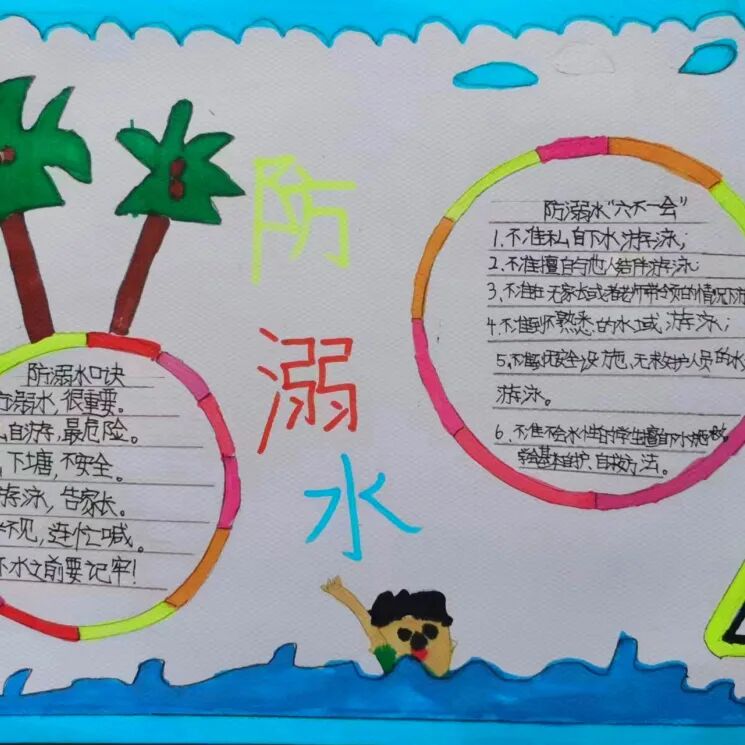 防溺水
防溺水口诀
溺水,很重要。
自游,最危险。
下塘,不安全。
游泳,告家长。
不见,连忙喊。
水之前要记牢!
防溺水“六不一会”
1.不准私自下水游泳;
2.不准擅自与他人结伴游泳
3.不准在无家长或者老师带领的情况下
4.不准到不熟悉的水域游泳;
5.不准到无安全设施,无救护人员的水
游泳。
6.不准不会水性的学生擅自下水
学会基本自护、自救方法。